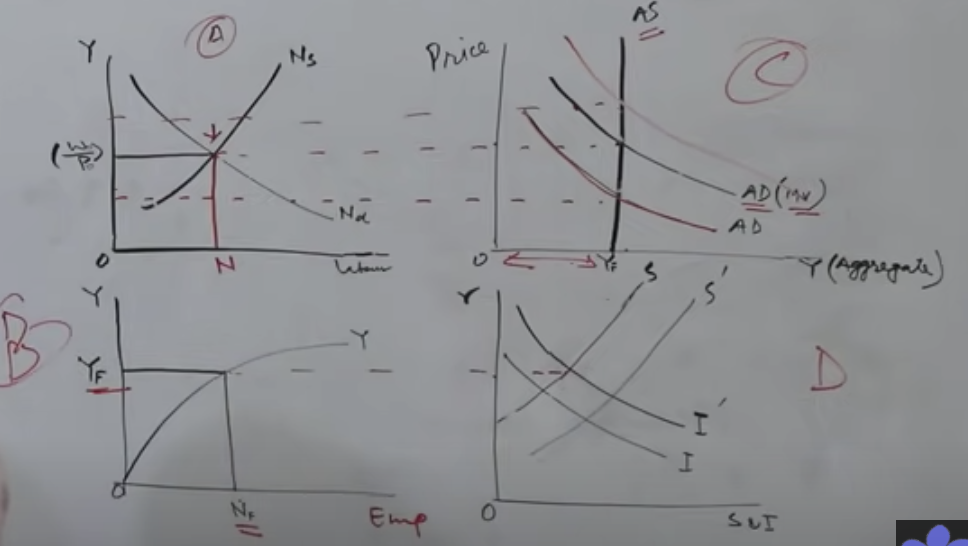 A
Y
Ns
(W₀/P₀)
Nd
0
N
Labour
Price
AS
C
AD (MV)
AD
0
YF
Y (Aggregate)
B
Y
YF
Y
0
NF
Emp
r
S
S'
D
I'
I
0
S & I